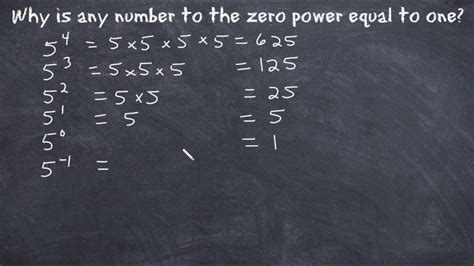 Why is any number to the zero power equal to one?
5⁴ = 5 × 5 × 5 × 5 = 625
5³ = 5 × 5 × 5 = 125
5² = 5 × 5 = 25
5¹ = 5 = 5
5⁰ = 1
5⁻¹ =